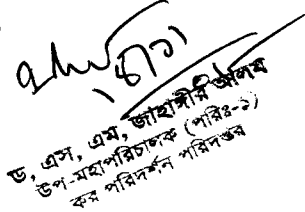 ড, এস, এম, জাহাঙ্গীর আলম
উপ-মহাপরিচালক (পরিঃ-১)
কর পরিদর্শন পরিদপ্তর